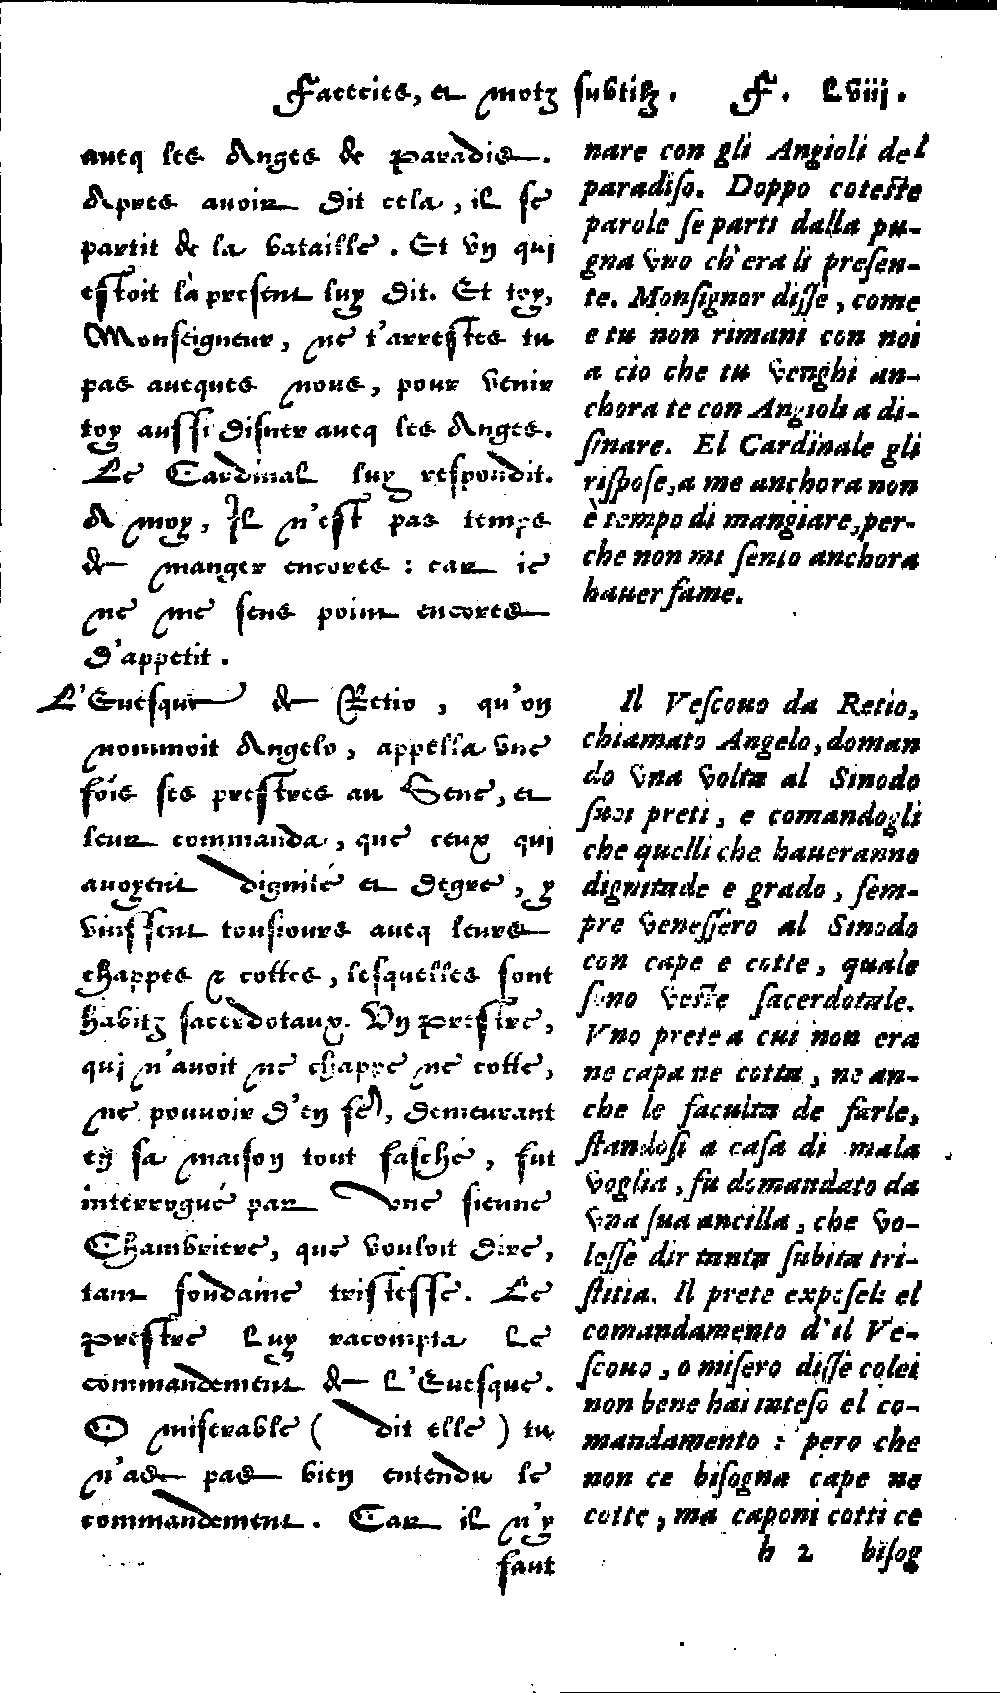 Facecies, et motz subtilz. F. LViij.
auecq les Anges de paradis.
Apres auoir dit cela, il se
partit de la bataille. Et vn qui
estoit là present luy dit. Et toy,
Monseigneur, ne t'arrestes tu
pas auecques nous, pour venir
toy aussi disner auecq les Anges.
Le Cardinal luy respondit.
A moy, Il n'est pas temps
de manger encores : car ie
ne me sens point encores
d'appetit.
L'Euesque de Retio, qu'on
nommoit Angelo, appella vne
fois ses prestres au Sene, et
leur commanda, que ceux qui
auoyent dignité et degre, y
vinssent tousiours auecq leurs
chappes & cottes, lesquelles sont
habitz sacerdotaux. Vn prestre,
qui n'auoit ne chappe ne cotte,
ne pouuoir d'en fer, demeurant
en sa maison tout fasché, fut
interrogué par vne sienne
Chambriere, que vouloit dire,
tant soudaine tristesse. Le
prestre luy racompta le
commandement de l'Euesque.
O miserable ( dit elle ) tu
n'as pas bien entendu le
commandement. Car il n'y
faut
nare con gli Angioli del
paradiso. Doppo coteste
parole se parti dalla pu-
gna vno ch'era li presen-
te. Monsignor disse, come
e tu non rimani con noi
a cio che tu venghi an-
chora te con Angioli a di-
sinare. El Cardinale gli
rispose, a me anchora non
è tempo di mangiare, per-
che non mi sento anchora
hauer fame.
Il Vescouo da Retio,
chiamato Angelo, doman
do vna volta al Sinodo
suoi preti, e comandogli
che quelli che haueranno
dignitade e grado, sem-
pre venessero al Sinodo
con cape e cotte, quale
sono veste sacerdotale.
Vno prete a cui non era
ne capa ne cotta, ne an-
che le faculta de farle,
standosi a casa di mala
voglia, fu domandato da
vna sua ancilla, che vo-
lesse dir tanta subita tri-
stitia. Il prete exposeli el
comandamento d'il Ve-
scouo, o misero disse colei
non bene hai inteso el co-
mandamento : pero che
non ce bisogna cape ne
cotte, ma caponi cotti ce
h 2 bisog